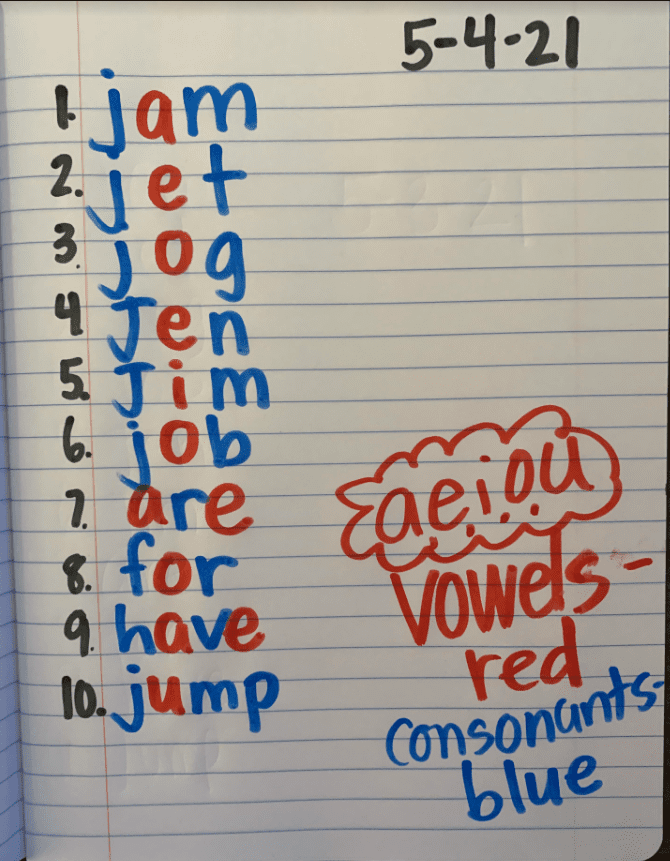 5-4-21
1. jam
2. jet
3. jog
4 Jen
5. Jim
6. job
7. are
8. for
9. have
10. jump
aeiou
vowels-
red
consonants-
blue